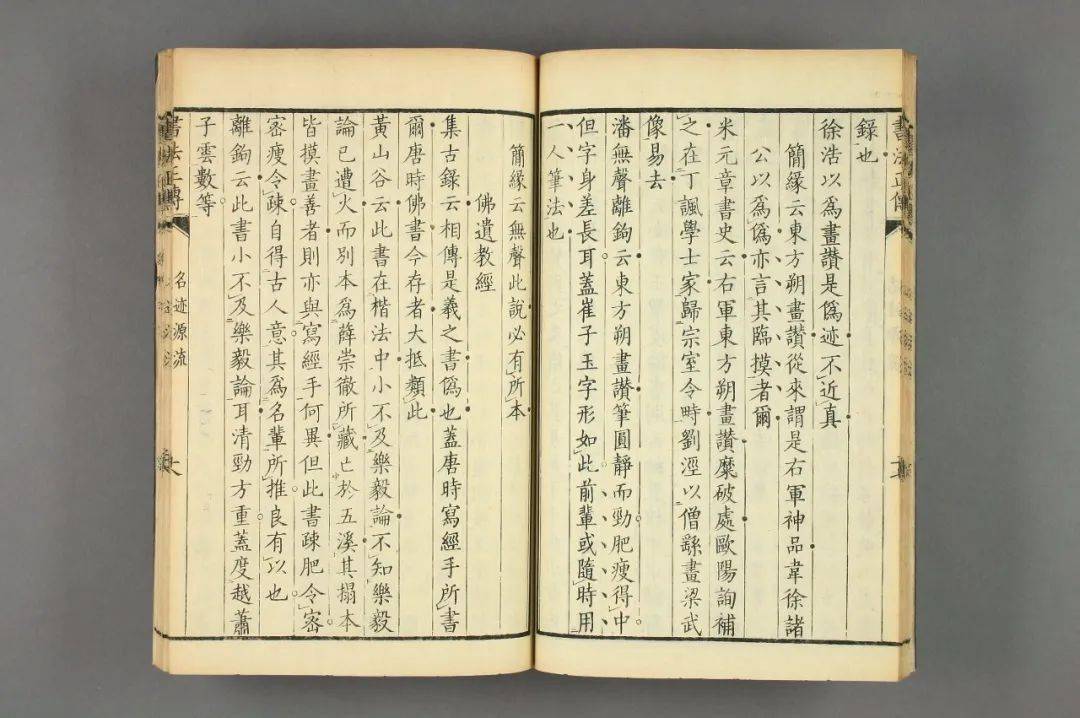 書法正傳
錄也
徐浩以為畫讚是僞迹不近真
簡緣云東方朔畫讚從來謂是右軍神品韋徐諸
公以爲僞亦言其臨摸者爾
米元章書史云右軍東方朔畫讚糜破處歐陽詢補
之在丁諷學士家歸宗室令時劉涇以僧繇畫梁武
像易去
潘無聲離鉤云東方朔畫讚筆圓靜而勁肥瘦得中
但字身差長耳蓋崔子玉字形如此前輩或隨時用
一人筆法也
簡緣云無聲此說必有所本
佛遺教經
集古錄云相傳是羲之書僞也蓋唐時寫經手所書
爾唐時佛書今存者大抵類此
黃山谷云此書在楷法中小不及樂毅論不知樂毅
論已遭火而別本爲薛崇徹所藏亡於五溪其搨本
皆摸畫善者則亦與寫經手何異但此書疎肥令密
密瘦令疎自得古人意其爲名輩所推良有以也
離鉤云此書小不及樂毅論耳清勁方重蓋度越蕭
子雲數等
書法正傳
名迹源流